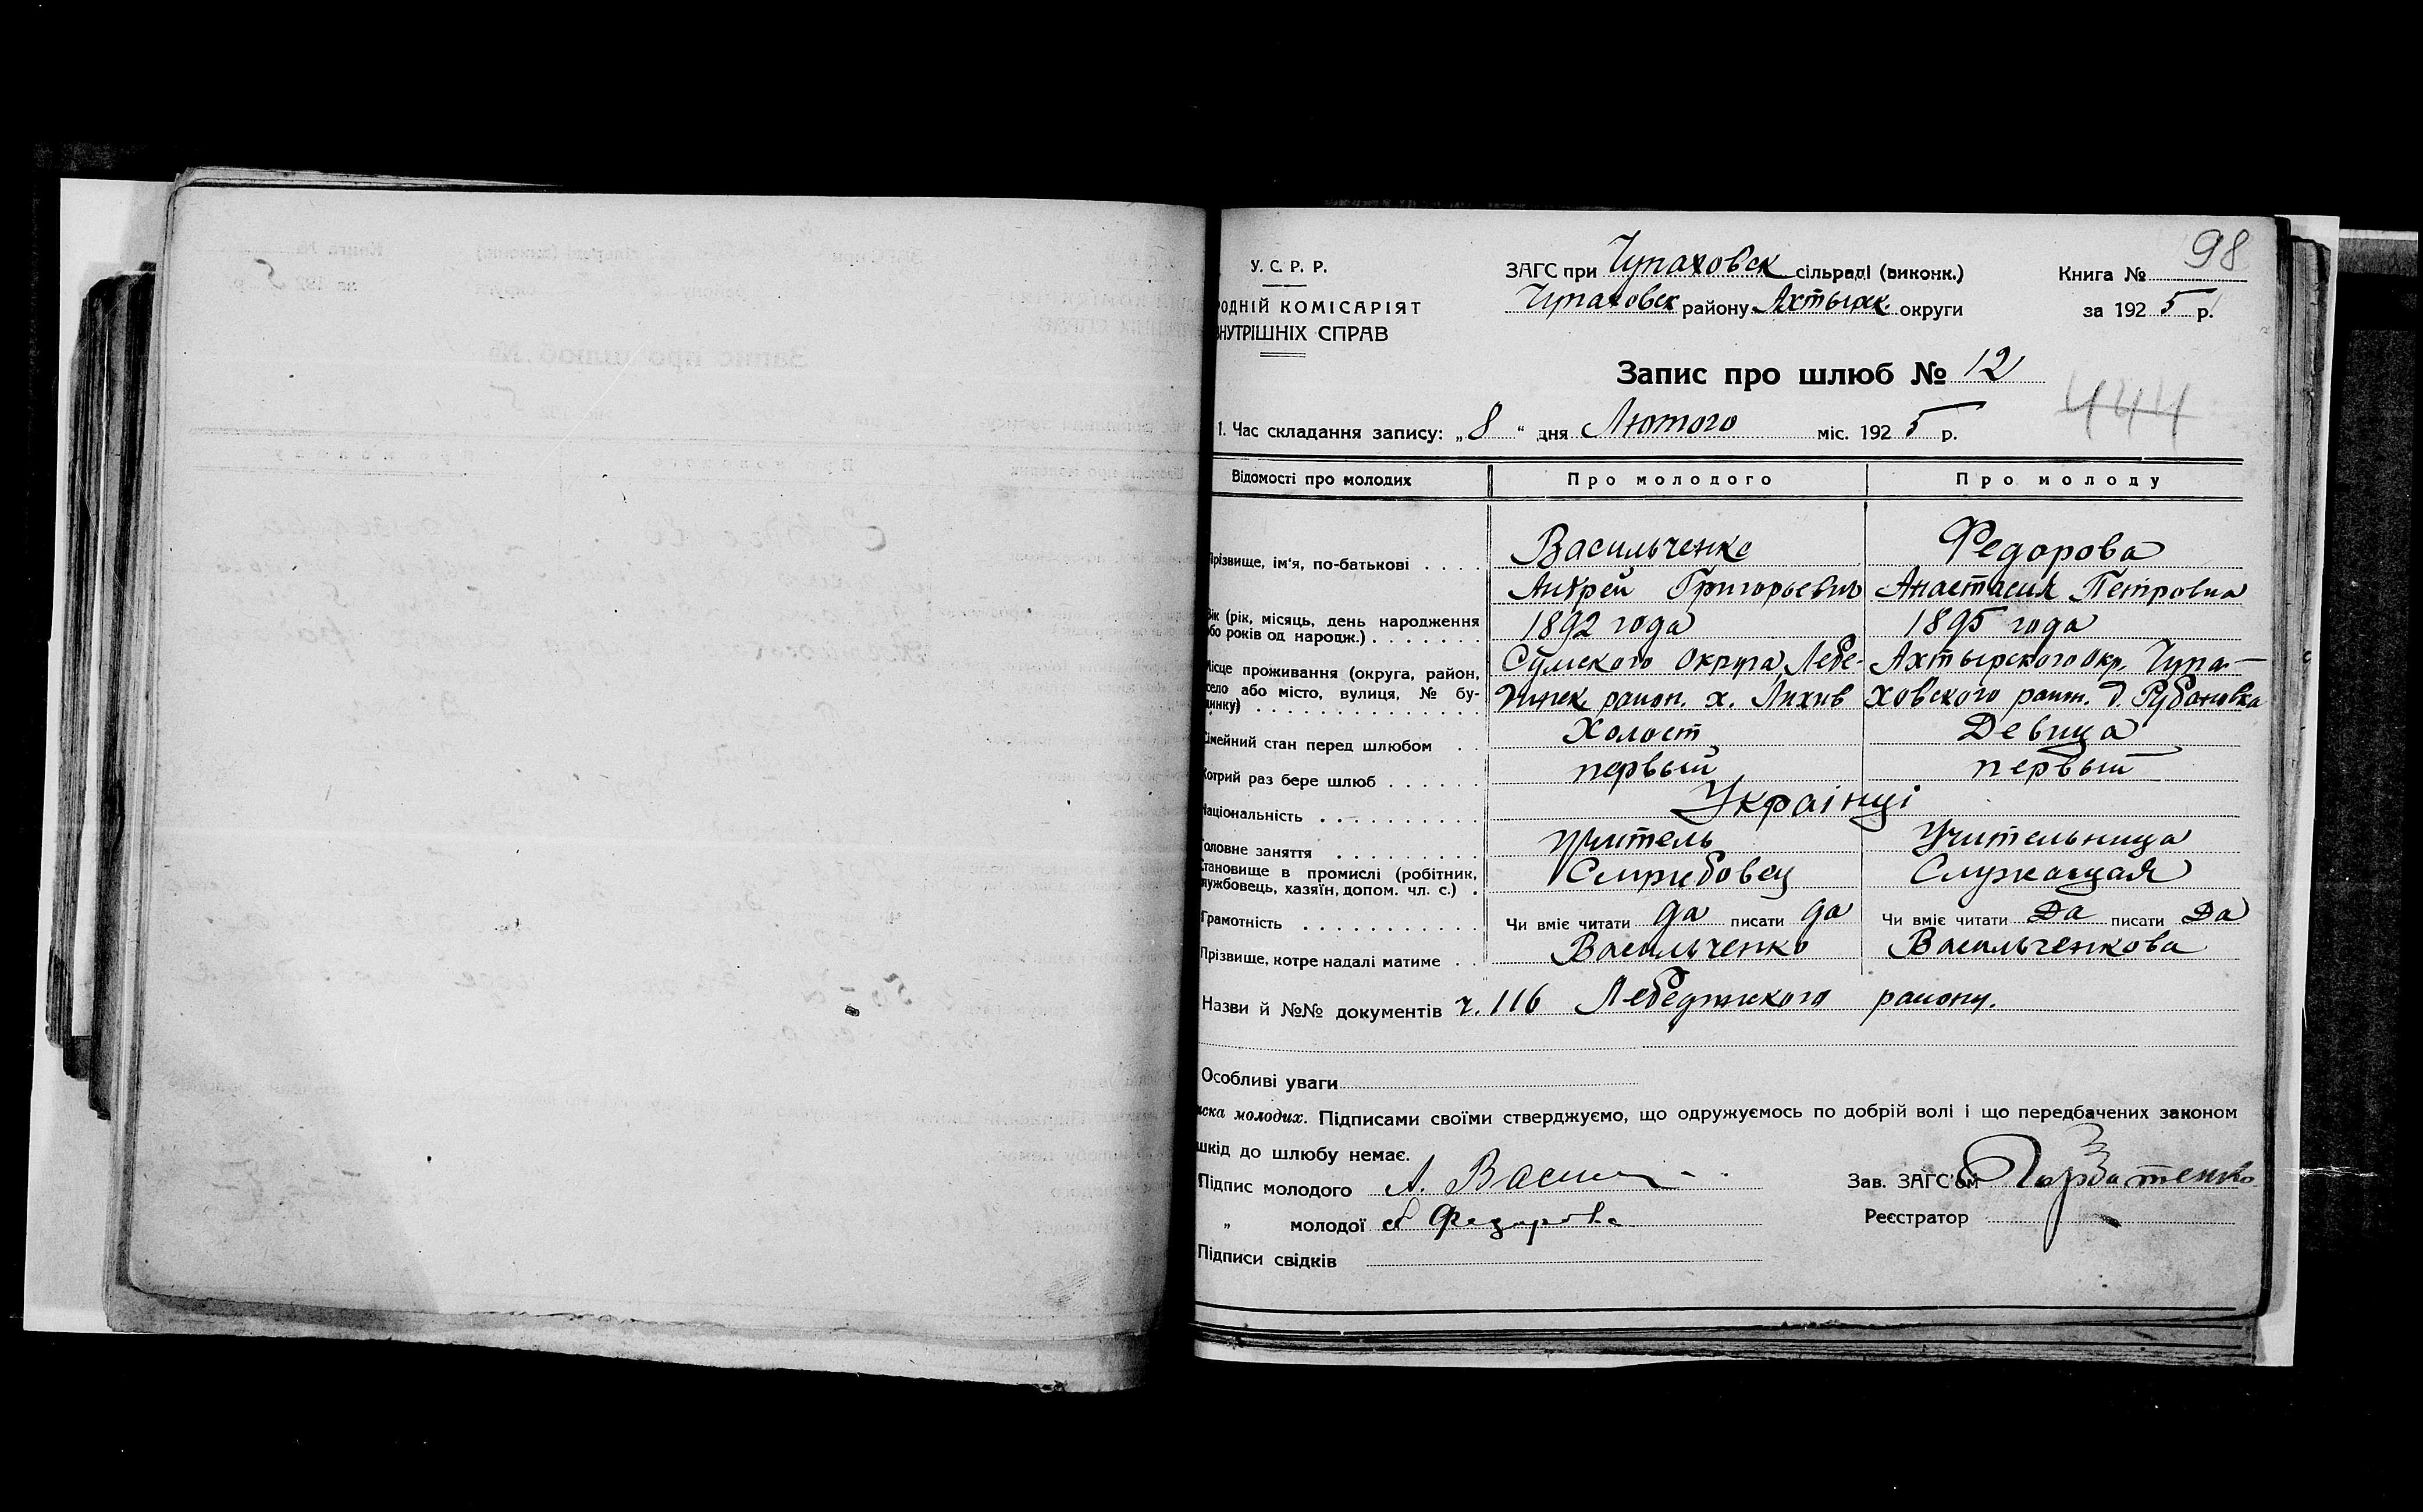 98
У. С. Р. Р.
ЗАГС при Чупаховск сільраді (виконк.)
Книга №
РОДНІЙ КОМІСАРІЯТ
Чупаховск району Ахтырск. округи
за 1925 р.
ВНУТРІШНІХ СПРАВ
Запис про шлюб № 12
444
1. Час складання запису: „8“ дня Лютого міс. 1925 р.
Відомості про молодих Про молодого Про молоду
Прізвище, ім'я, по-батькові . . . . Васильченко Федорова
Андрей Григорьевич Анастасия Петровна
Вік (рік, місяць, день народження
або років од народж.) . . . . . . . 1892 года 1895 года
Місце проживання (округа, район, Сумского Округа, Лебе- Ахтырского Окр. Чупа-
село або місто, вулиця, № бу- динск. район. х. Лихив ховского район. д. Рубановка
динку) . . . . . . . . . . . . . .
Сімейний стан перед шлюбом . . Холост Девица
Котрий раз бере шлюб . . . . . . первый первый
Національність . . . . . . . . . . Українці
Головне заняття . . . . . . . . . Учитель Учительница
Становище в промислі (робітник,
службовець, хазяїн, допом. чл. с.) . Службовец Служащая
Грамотність . . . . . . . . . . . Чи вміє читати да писати да Чи вміє читати Да писати Да
Прізвище, котре надалі матиме . . Васильченко Васильченкова
Назви й №№ документів ч. 116 Лебединского району.
Особливі уваги
иска молодих. Підписами своїми стверджуємо, що одружуємось по добрій волі і що передбачених законом
шкід до шлюбу немає.
Підпис молодого А. Васил
Зав. ЗАГС'ом Горбатенко
„ молодої А Федорова
Реєстратор
Підписи свідків